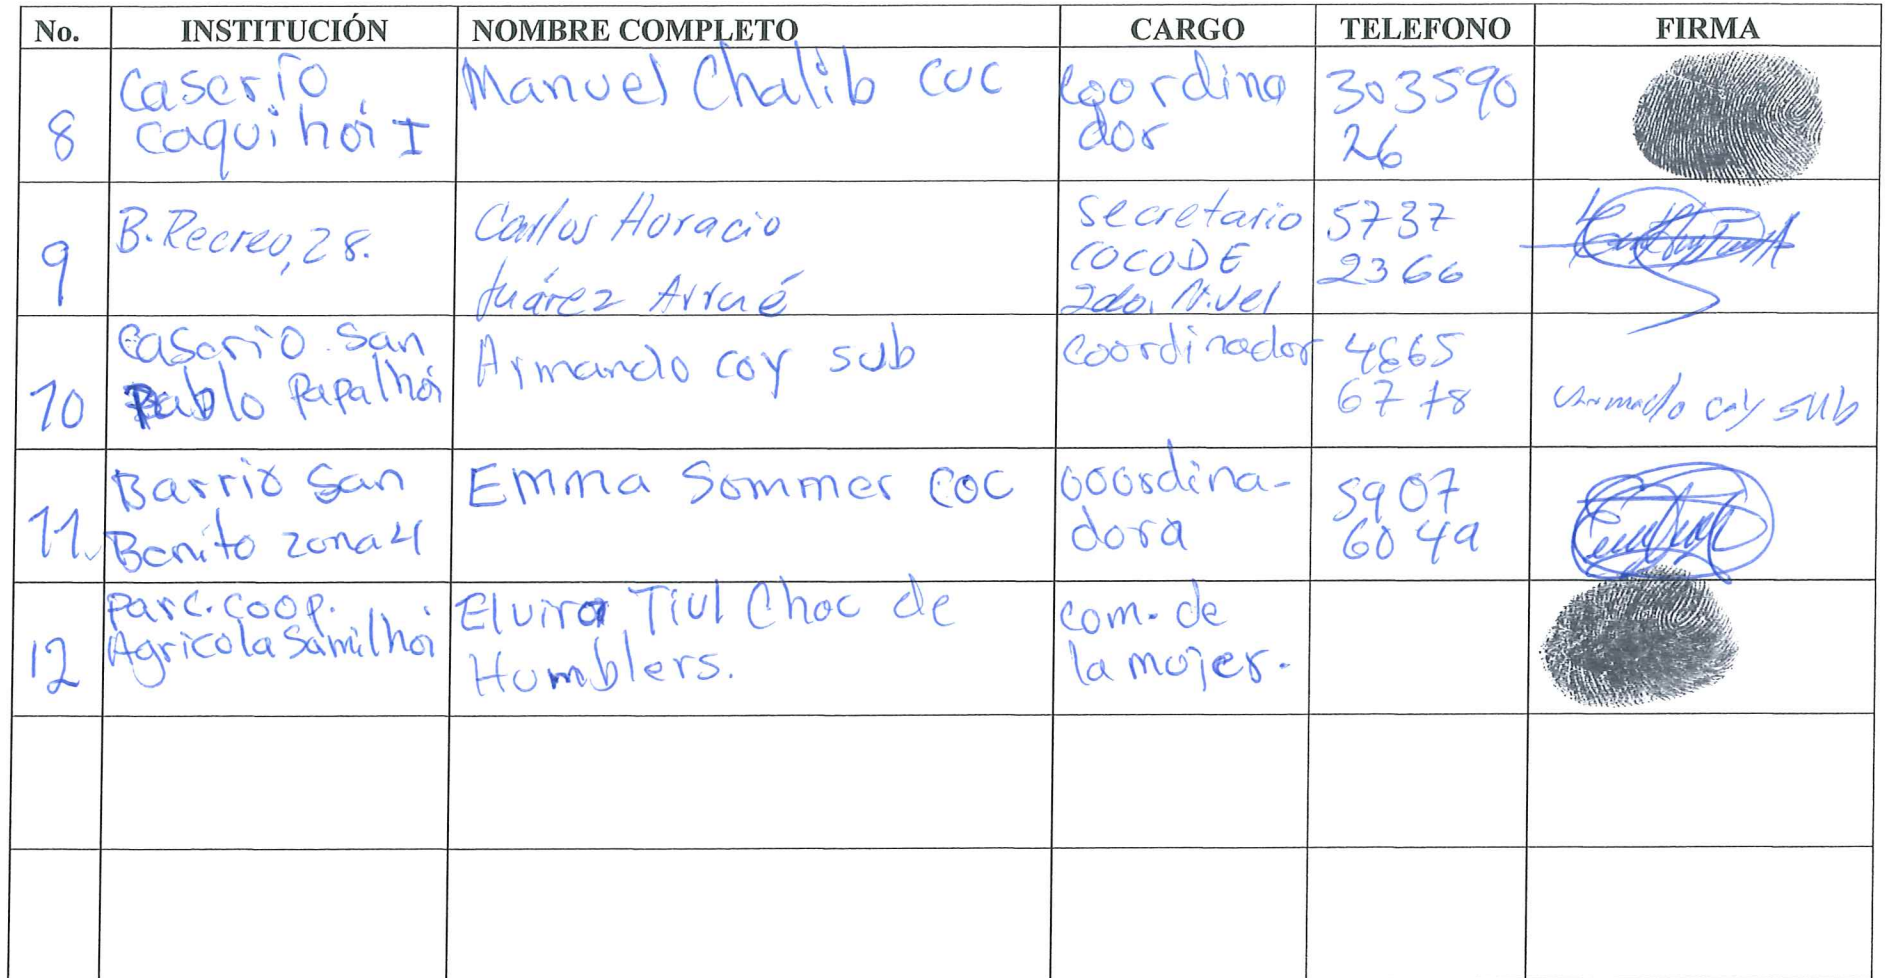 No. INSTITUCIÓN NOMBRE COMPLETO CARGO TELEFONO FIRMA
8
Caserío
Caquihoi I
Manuel Chalib Cuc
Coordina
dor
303590
26
9
B. Recreo, 28.
Carlos Horacio
Juárez Arrué
Secretario
COCODE
2do. Nivel
5737
2366
10
Caserio San
Pablo Papalhoi
Armando coy sub
Coordinador
4665
6778
coy sub
11.
Barrio San
Benito zona 4
Emma Sommer Coc
coordina-
dora
5907
6049
12
Parc. coop.
Agricola Samilhoi
Elvira Tiul Choc de
Humblers.
com. de
la mojer.